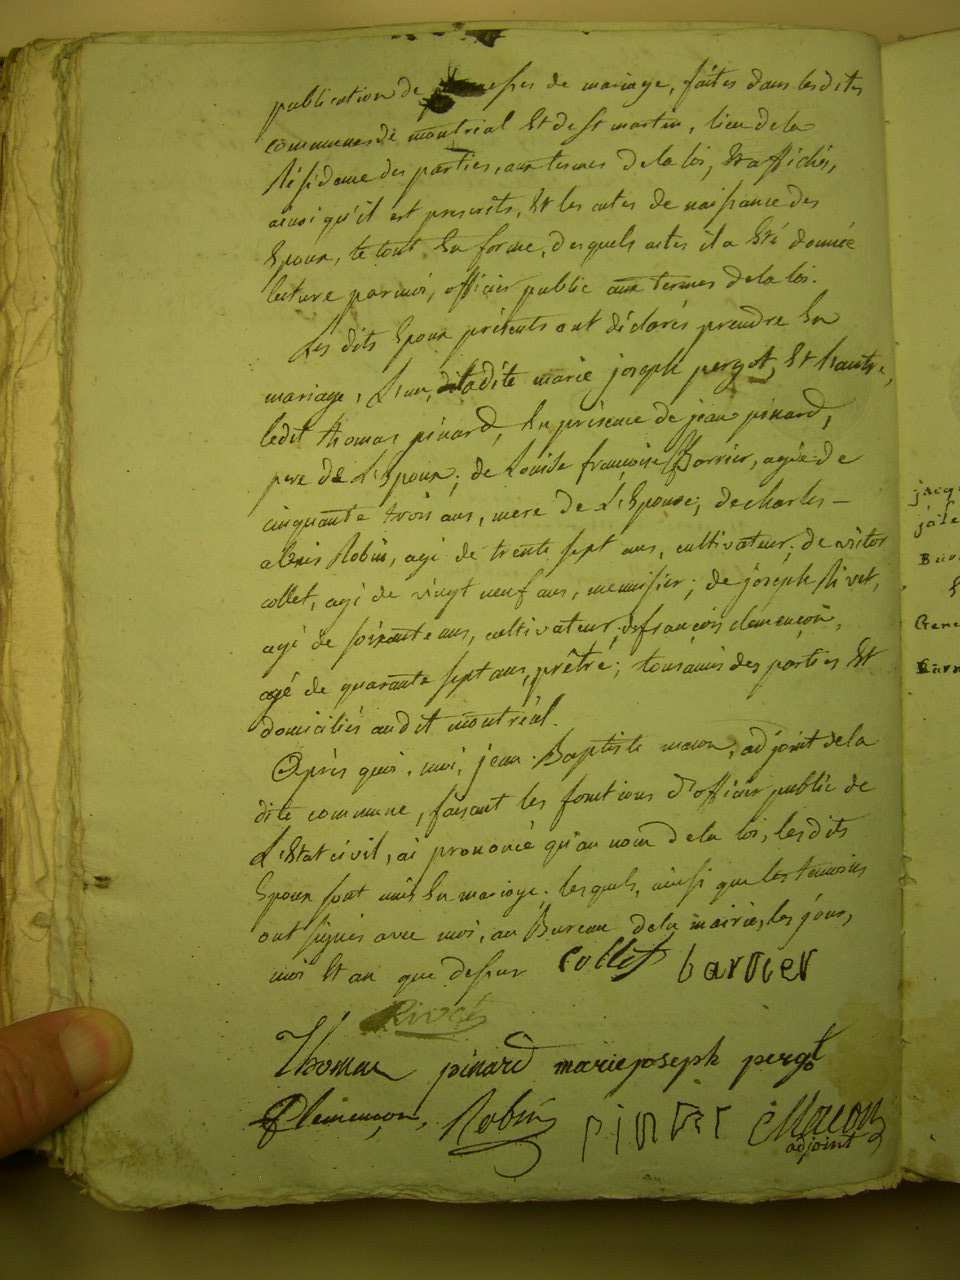 publication de promesses de mariage, faites dans lesdites
communes de montréal Et de St martin, lieu de la
Résidence des parties, aux termes de la loi, Et affichés,
ainsi qu'il est prescrits, Et les actes de naissance des
Epoux, le tout En forme, desquels actes il a Eté donnée
lecture par moi, officier public aux termes de la loi.
Les dits Epoux présents ont déclarés prendre En
mariage, L'un, ladite marie joseph pergot, Et L'autre,
ledit thomas pinard, En présence de jean pinard,
pere de L'Epoux; de Louise françoise Barrier, agée de
cinquante trois ans, mere de L'Epouse; de charles-
alexis Robin, agé de trente sept ans, cultivateur; de victor
collet, agé de vingt neuf ans, menuisier; de joseph Rivet,
agé de soixante ans, cultivateur; de françois clemençon,
agé de quarante sept ans, prêtre; tous amis des parties Et
domiciliés audit montréal.
Après quoi, moi, jean Baptiste macon, adjoint de la
dite commune, faisant les fonctions d'officier public de
L'Etat civil, ai prononcé qu'au nom de la loi, les dits
Epoux sont unis En mariage; lesquels, ainsi que les temoins
ont signés avec moi, au Bureau de la mairie, les jour,
moi Et an que dessus Collet barrier
Rivet
Thomas pinard marie joseph pergot
Clemençon, Robin pinard Macon
adjoint
jacq
Gene